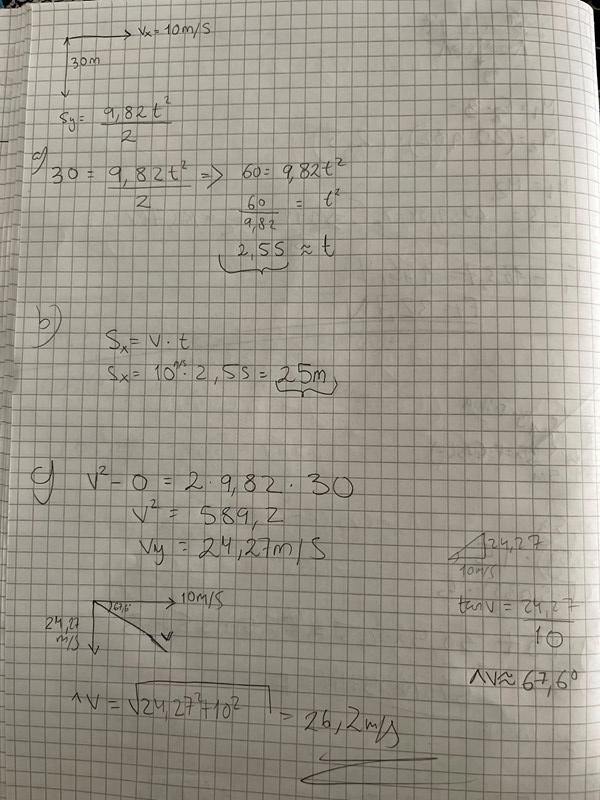 Vx = 10m/s
30m
Sy = 9,82t²/2
a) 30 = 9,82t²/2 => 60 = 9,82t²
60/9,82 = t²
2,5s ≈ t
b) Sx = v · t
Sx = 10 m/s · 2,5s = 25m
c) v² - 0 = 2 · 9,82 · 30
v² = 589,2
Vy = 24,27m/s
24,27
10m/s
tan v = 24,27/10
^v ≈ 67,6°
10m/s
67,6°
24,27 m/s
^v = √24,27²+10² = 26,2m/s